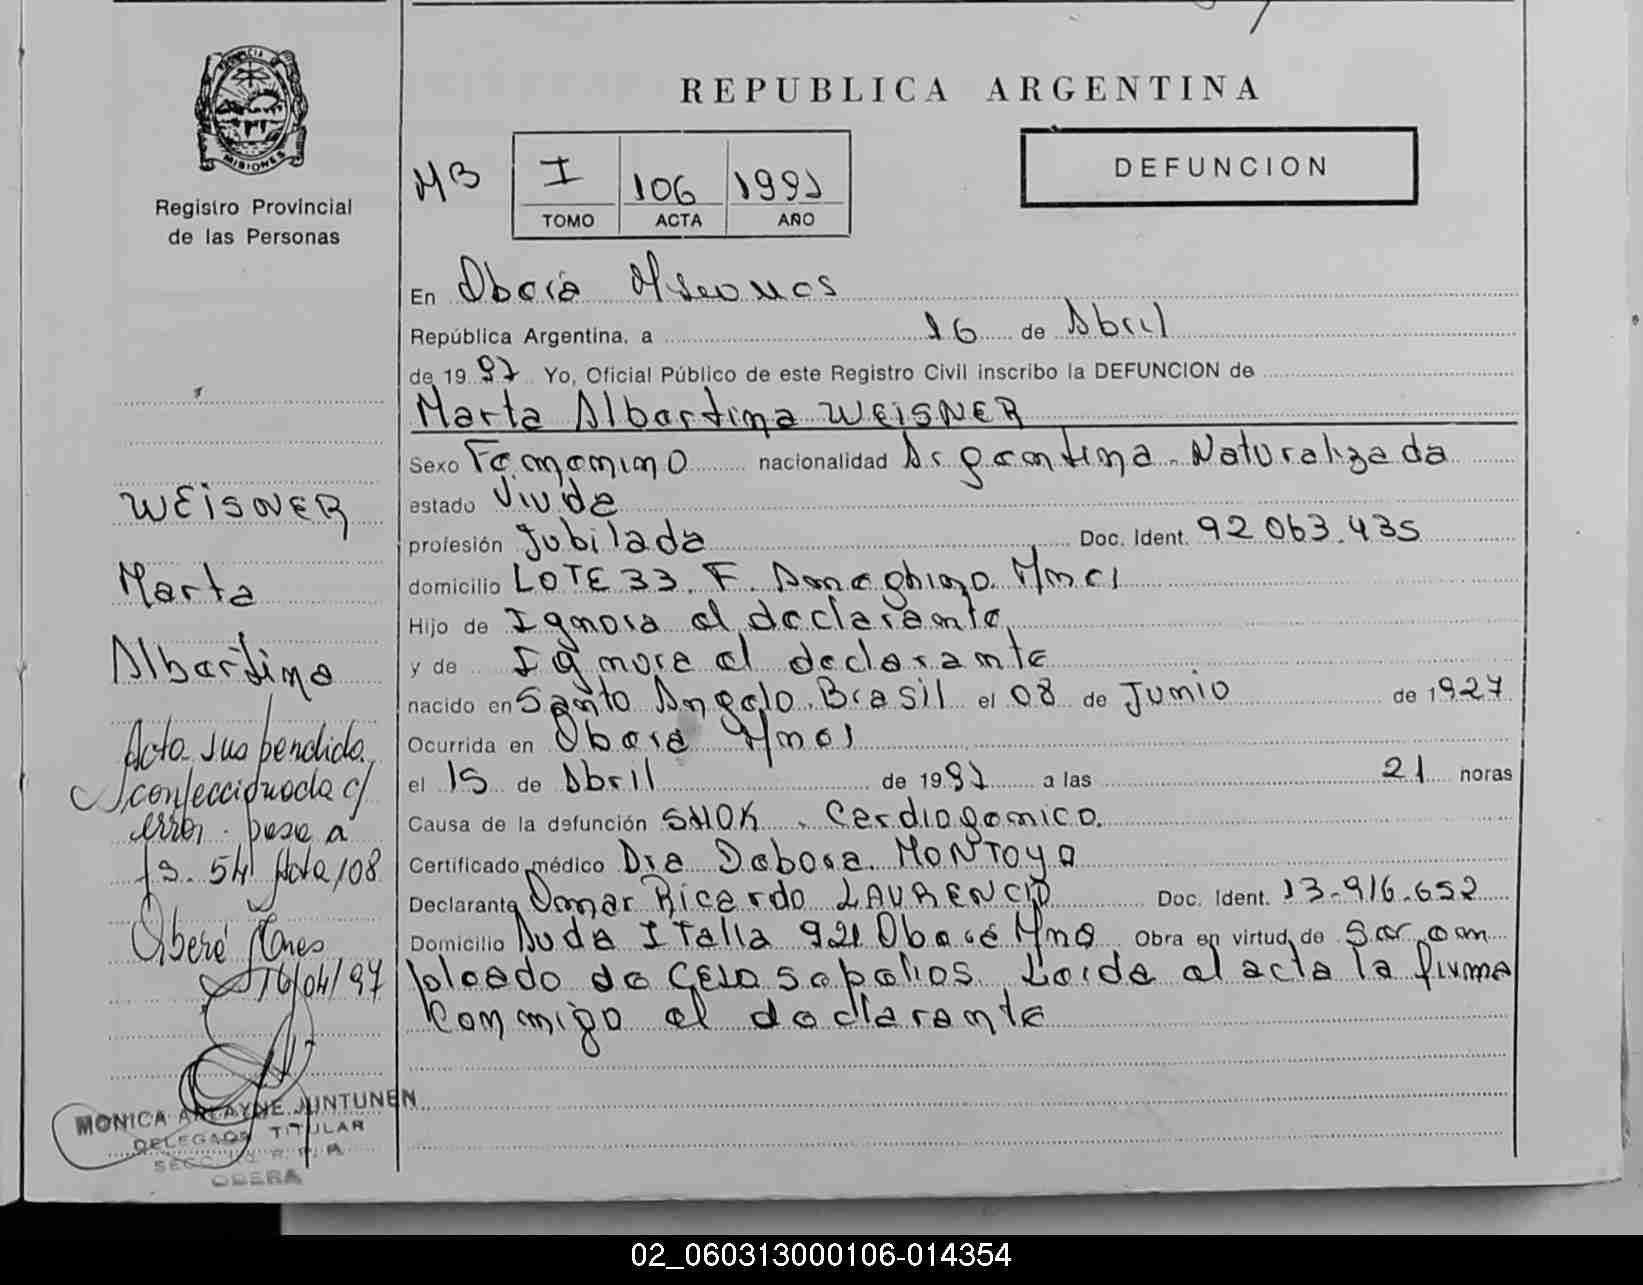 PROVINCIA DE
MISIONES
Registro Provincial
de las Personas
REPUBLICA ARGENTINA
DEFUNCION
MB
I 106 1991
TOMO ACTA AÑO
En Oberá Misiones
República Argentina, a 16 de Abril
de 1997 Yo, Oficial Público de este Registro Civil inscribo la DEFUNCION de
Marta Albertina WEiSNER
Sexo Femenino nacionalidad Argentina. Naturalizada
estado Viuda
profesión Jubilada Doc. Ident. 92.063.435
domicilio LOTE 33. F. Ameghino. Mnes
Hijo de Ignora el declarante
y de Ignora el declarante
nacido en Santo Angelo. Brasil el 08 de Junio de 1927
Ocurrida en Oberá Mnes
el 15 de Abril de 1997 a las 21 horas
Causa de la defunción SHOK. Cardiogenico.
Certificado médico Dra Debora MONTOYA
Declarante Omar Ricardo LAURENCIO Doc. Ident. 13.916.652
Domicilio Avda Italia 921 Oberá Mnes Obra en virtud de Ser em
pleado de CELO sepelios. Leida el acta la firma
Conmigo el declarante
WEiSNER
Marta
Albertina
Acta suspendida
confeccionada c/
error. pasa a
fs. 54 Acta 108
Oberá Mnes
16/04/97
MONICA ARLAYNE JUNTUNEN
DELEGADA TITULAR
OBERA
02_060313000106-014354